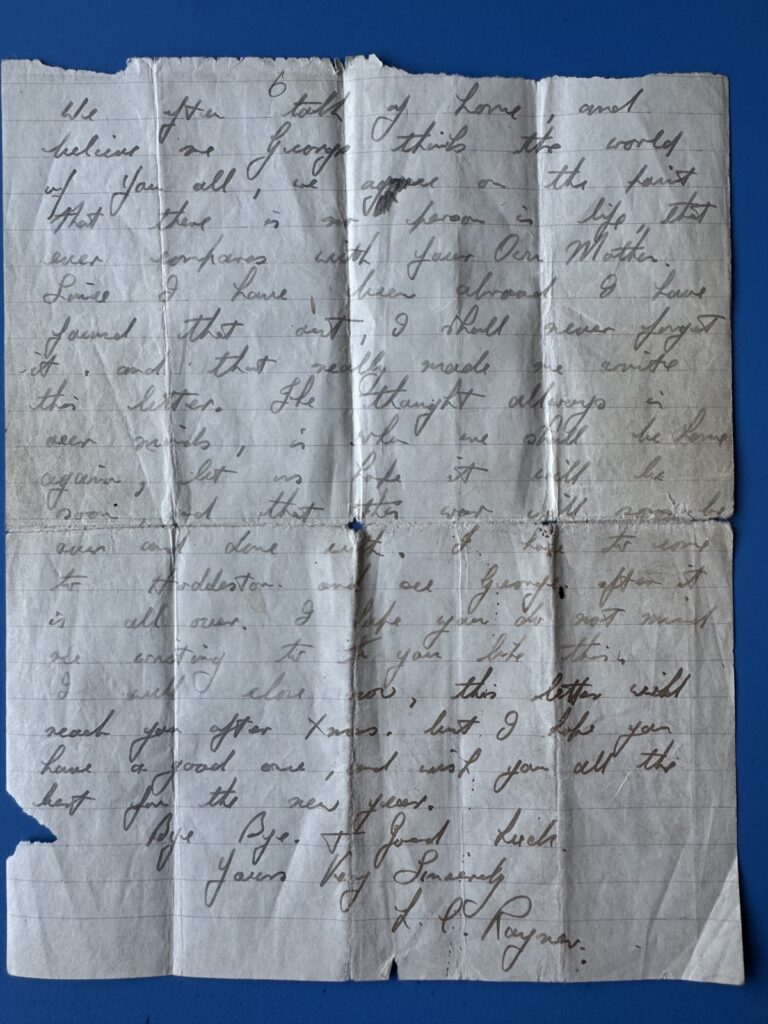 6
We often talk of home, and
believe me George thinks the world
of you all, we agree on the point
that there is no person in life, that
ever compares with your Own Mother.
Since I have been abroad I have
found that out, I shall never forget
it. and that really made me write
this letter. The thought allways in
our minds, is when we shall be home
again, let us hope it will be
soon and that this war will soon be
over and done with. I hope to come
to Hoddeston. and see George after it
is all over. I hope you do not mind
me writing to you like this.
I will close now, this letter will
reach you after Xmas. but I hope you
have a good one, and wish you all the
best for the new year.
Bye Bye. + Good Luck
Yours Very Sincerely
L. C. Rayner.